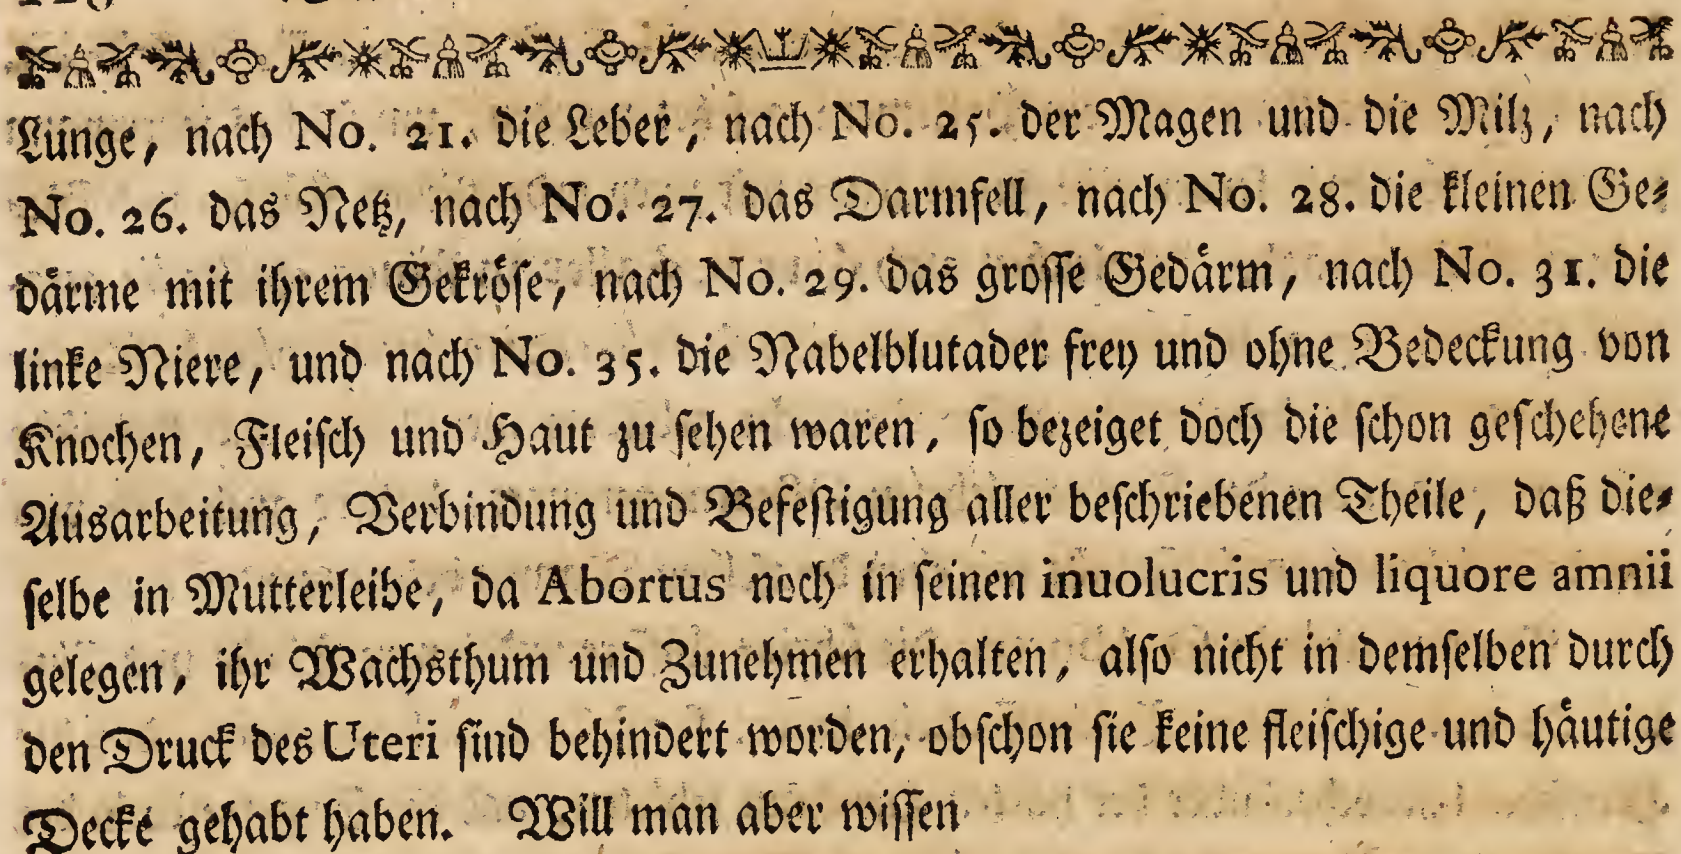 Lunge, nach No. 21. die Leber, nach No. 25. der Magen und die Milz, nach
No. 26. das Netz, nach No. 27. das Darmfell, nach No. 28. die kleinen Ge⸗
därme mit ihrem Gekröse, nach No. 29. das grosse Gedärm, nach No. 31. die
linke Niere, und nach No. 35. die Nabelblutader frey und ohne Bedeckung von
Knochen, Fleisch und Haut zu sehen waren, so bezeiget doch die schon geschehene
Ausarbeitung, Verbindung und Befestigung aller beschriebenen Theile, daß die⸗
selbe in Mutterleibe, da Abortus noch in seinen inuolucris und liquore amnii
gelegen, ihr Wachsthum und Zunehmen erhalten, also nicht in demselben durch
den Druck des Uteri sind behindert worden, obschon sie keine fleischige und häutige
Decke gehabt haben. Will man aber wissen